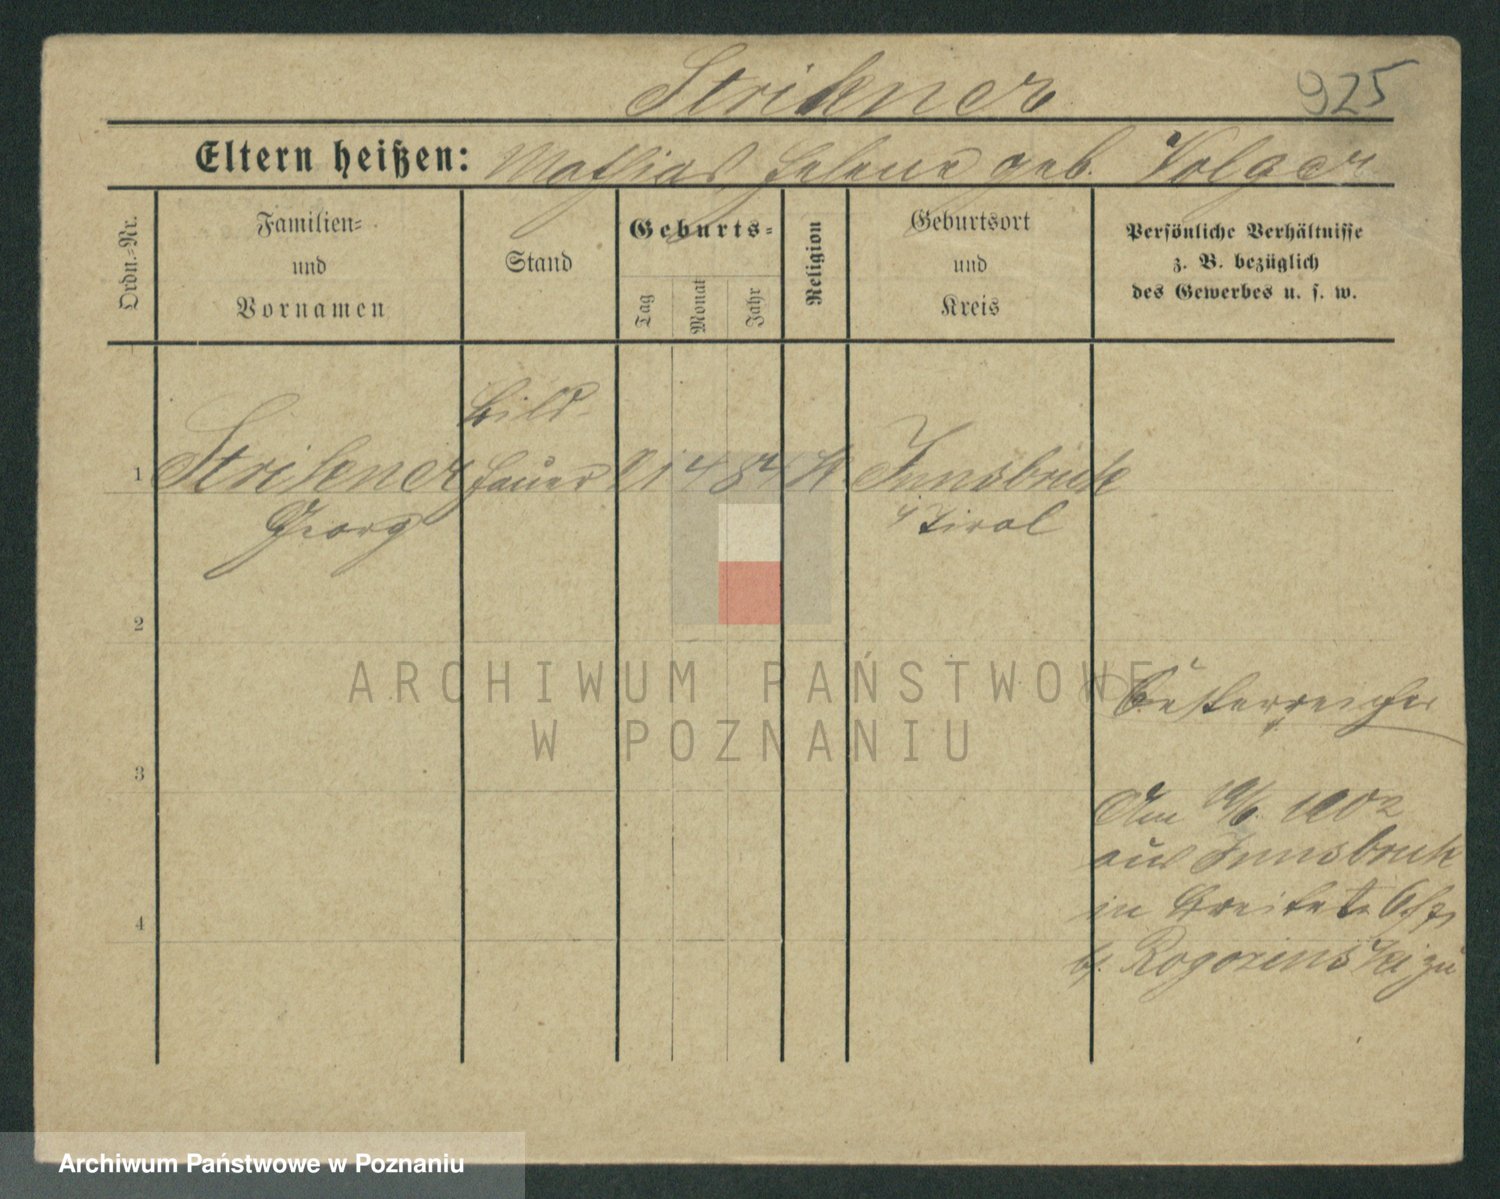 Strikner
925
Eltern heißen: Mathias Helene geb. Volger
Ordn.-Nr.
Familien-
und
Vornamen
Stand
Geburts-
Tag
Monat
Jahr
Religion
Geburtsort
und
Kreis
Persönliche Verhältnisse
z. B. bezüglich
des Gewerbes u. s. w.
Bild-
1 Strikner hauer 21 4 84 K. Innsbruk
Georg i/ Tirol
2
ARCHIWUM PAŃSTWOWE
Oesterreicher
W POZNANIU
3
Am 1902
aus Innsbruk
in
4
b. Rogozinski zu
Archiwum Państwowe w Poznaniu